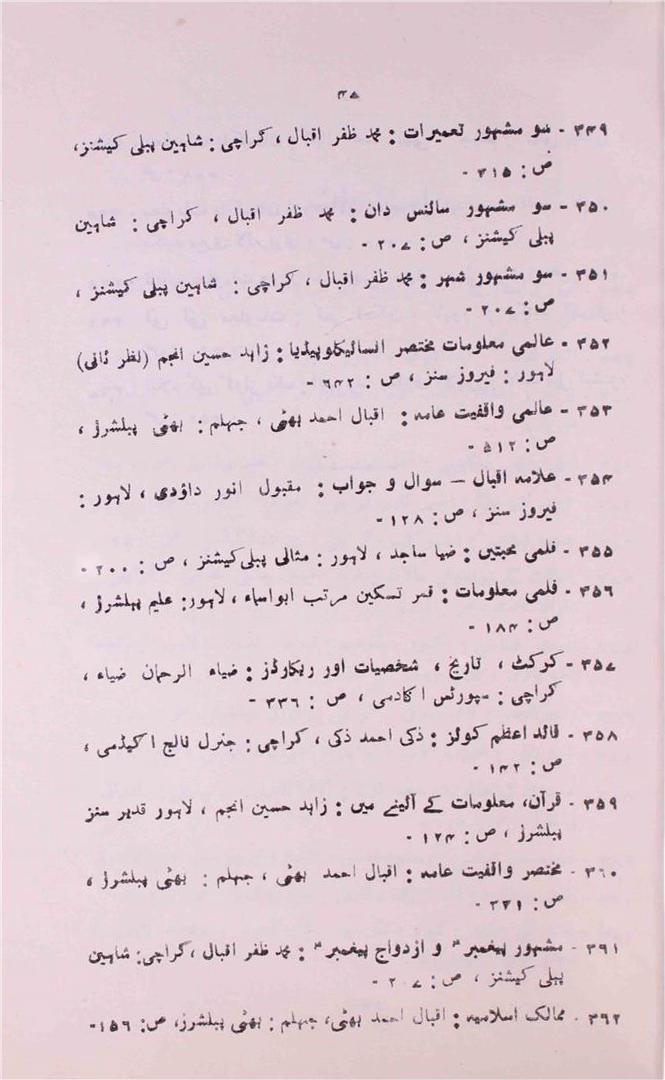 ۳۷
۳۴۹ - سو مشہور تعمیرات : محمد ظفر اقبال ، کراچی : شاہین پبلی کیشنز،
ص : ۳۱۵ -
۳۵۰ - سو مشہور سائنس دان : محمد ظفر اقبال ، کراچی : شاہین
پبلی کیشنز ، ص : ۲۰۷ -
۳۵۱ - سو مشہور شہر : محمد ظفر اقبال ، کراچی : شاہین پبلی کیشنز ،
ص : ۲۰۷ -
۳۵۲ - عالمی معلومات مختصر انسائیکلوپیڈیا : زاہد حسین انجم (نظر ثانی)
لاہور : فیروز سنز ، ص : ۶۴۲ -
۳۵۳ - عالمی واقفیت عامہ : اقبال احمد بھٹی ، جہلم : بھٹی پبلشرز ،
ص : ۵۱۲ -
۳۵۴ - علامہ اقبال — سوال و جواب : مقبول انور داؤدی ، لاہور :
فیروز سنز ، ص : ۱۲۸ -
۳۵۵ - فلمی محبتیں : ضیا ساجد ، لاہور : مثالی پبلی کیشنز ، ص : ۲۰۰ -
۳۵۶ - فلمی معلومات : قمر تسکین مرتب ابو اسماء ، لاہور : علیم پبلشرز ،
ص : ۱۸۴ -
۳۵۷ - کرکٹ ، تاریخ ، شخصیات اور ریکارڈز : ضیاء الرحمان ضیاء ،
کراچی : سپورٹس اکادمی ، ص : ۳۳۶ -
۳۵۸ - قائد اعظم کوئز : ذکی احمد ذکی ، کراچی : جنرل نالج اکیڈمی ،
ص : ۱۴۲ -
۳۵۹ - قرآن، معلومات کے آئینے میں : زاہد حسین انجم ، لاہور قدیر سنز
پبلشرز ، ص : ۱۲۴ -
۳۶۰ - مختصر واقفیت عامہ : اقبال احمد بھٹی ، جہلم : بھٹی پبلشرز ،
ص : ۲۲۱ -
۳۶۱ - مشہور پیغمبرؑ و ازدواج پیغمبرؑ : محمد ظفر اقبال ، کراچی : شاہین
پبلی کیشنز ، ص : ۲۰۷ -
۳۶۲ - ممالک اسلامیہ : اقبال احمد بھٹی ، جہلم : بھٹی پبلشرز، ص : ۱۵۶ -